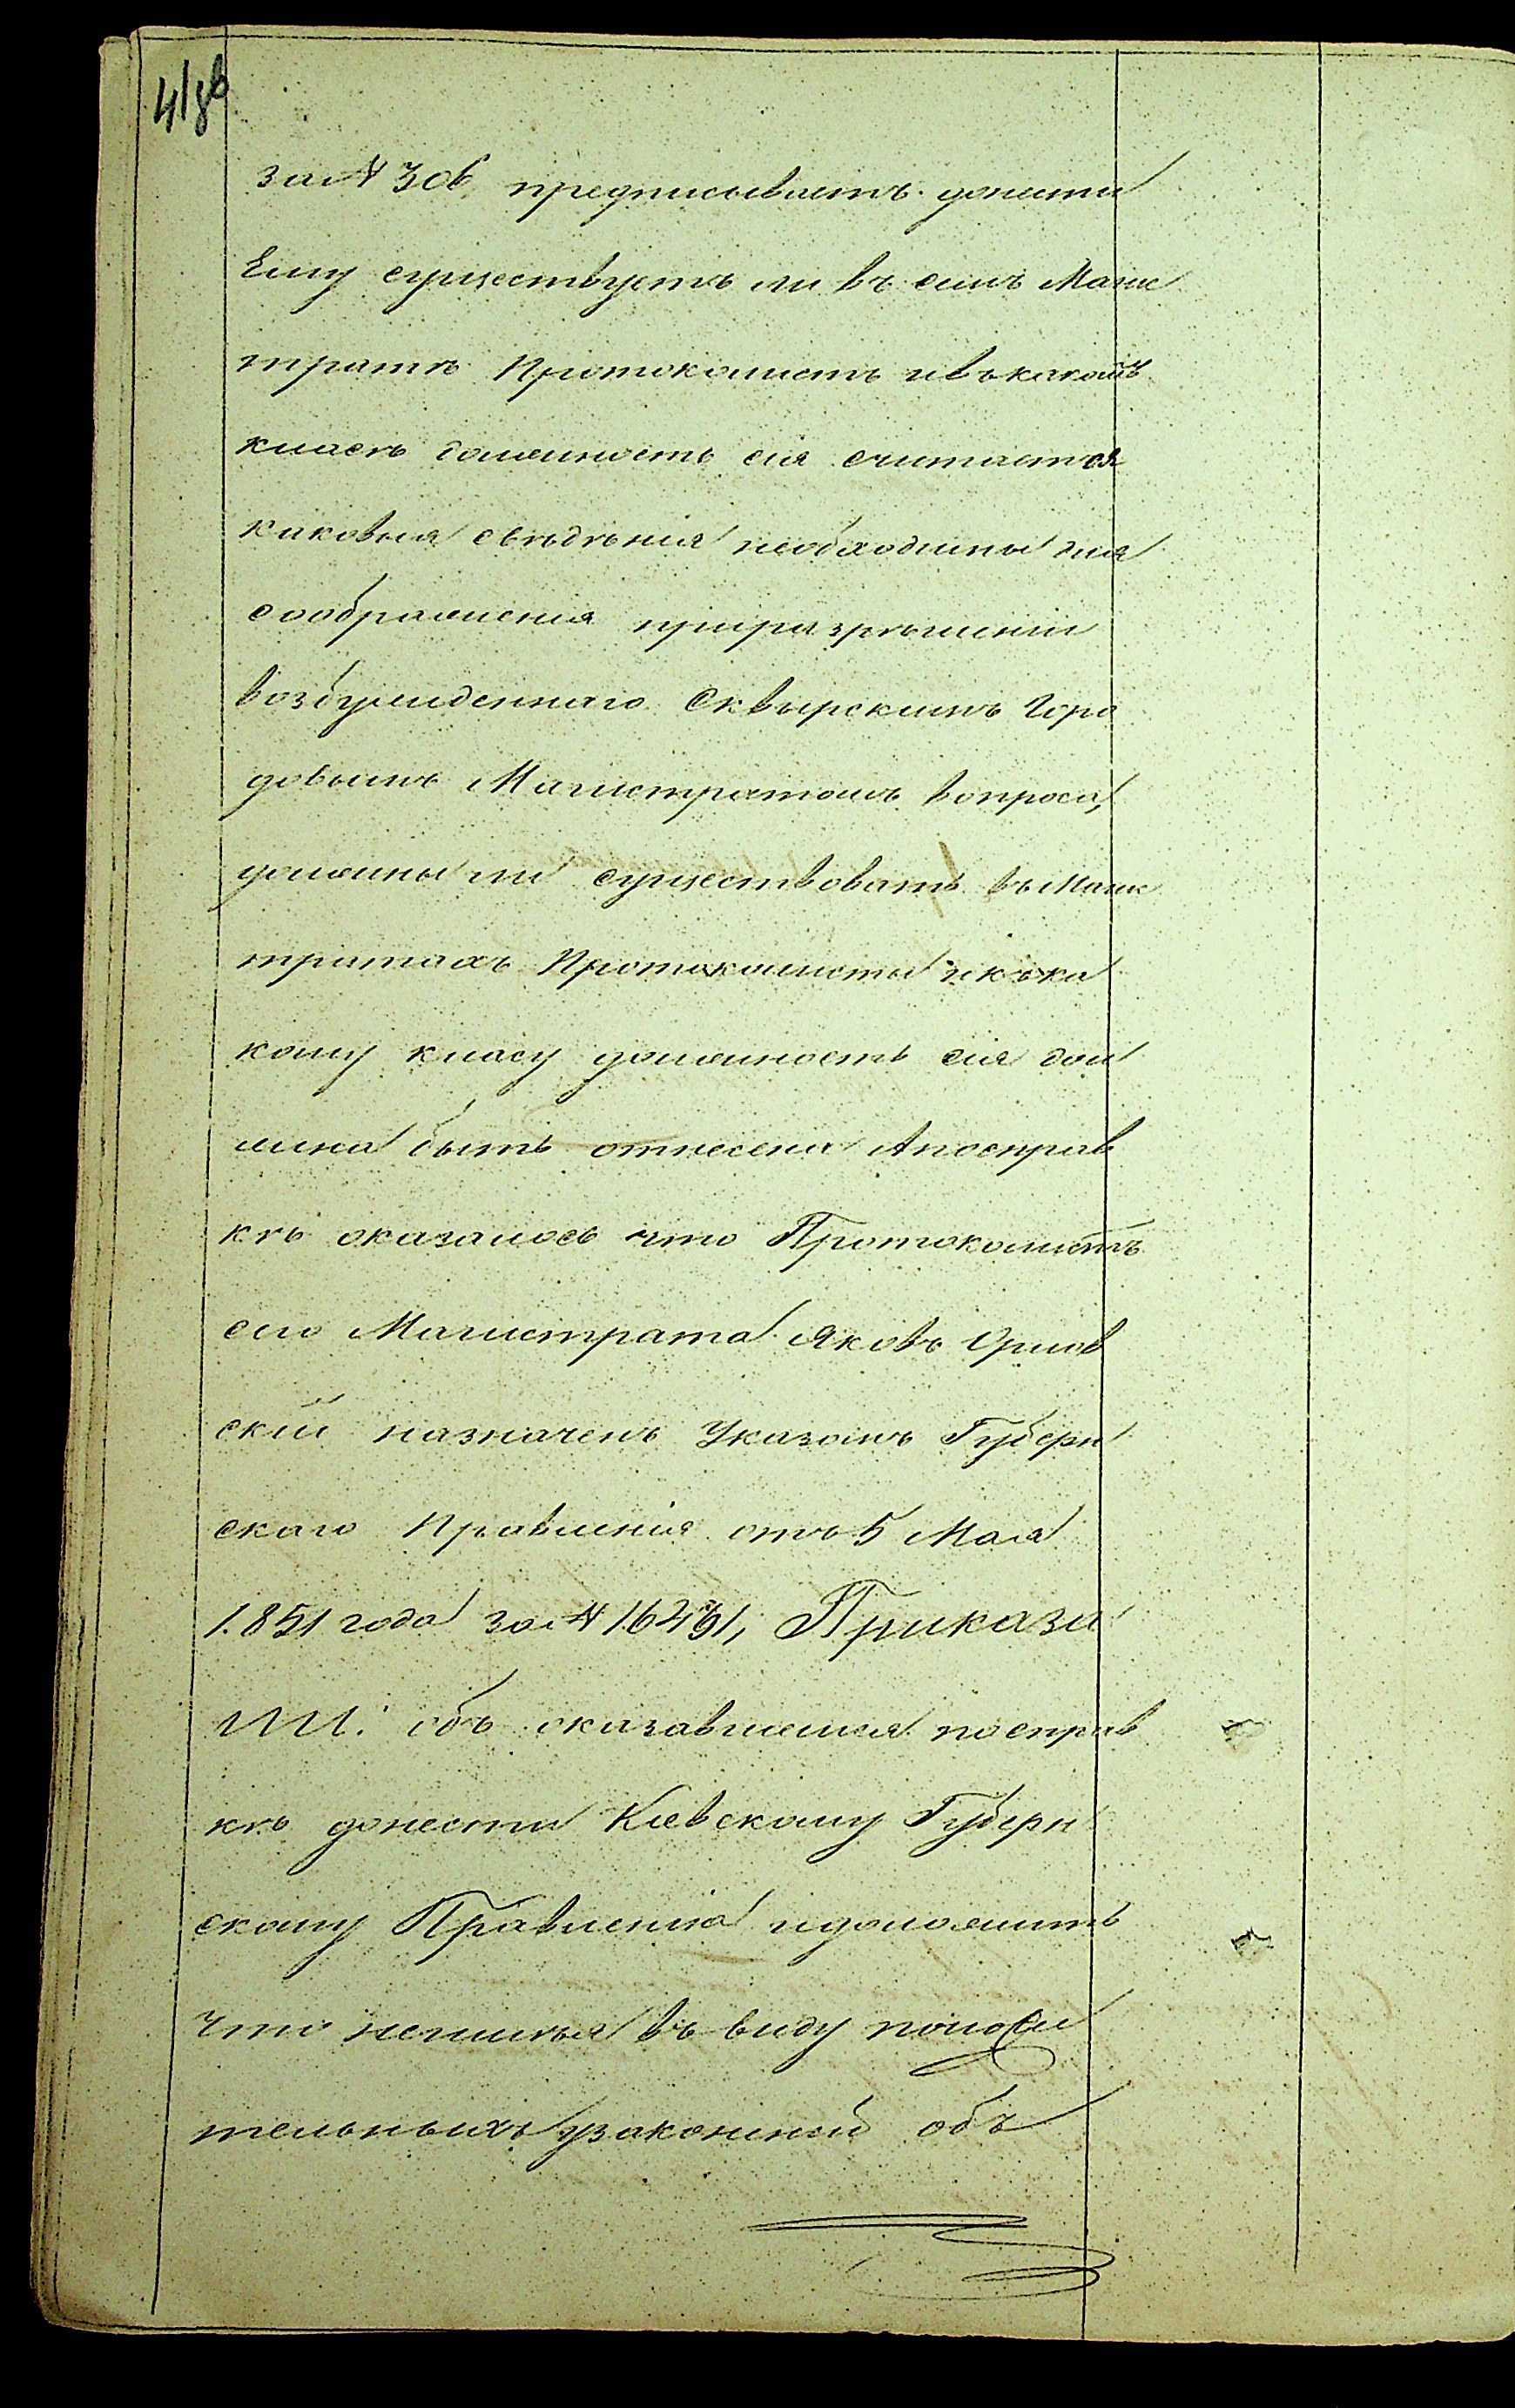 418
за № 306 предписываетъ донести
Ему существуетъ ли въ семъ Магис
тратѣ Протоколистъ и въ какомъ
класѣ должность сія считается
каковыя свѣдѣнія необходимы для
соображенія при разрѣшеніи
возбужденнаго Сквырскимъ Горо
довымъ Магистратомъ вопроса,
должны ли существовать въ Магис
тратахъ Протоколисты и къ ка
кому класу должность сія дол
жна быть отнесена А по справ
кѣ оказалось что Протоколистъ
сего Магистрата Яковъ Орлов
скій назначенъ Указомъ Губерн
скаго Правленія отъ 5 Мая
1851 года за № Приказа
ли: объ оказавшемся по справ
кѣ донести Кіевскому Губерн
скому Правленію и доложить
что неимѣя въ виду положи
тельныхъ узаконеній объ